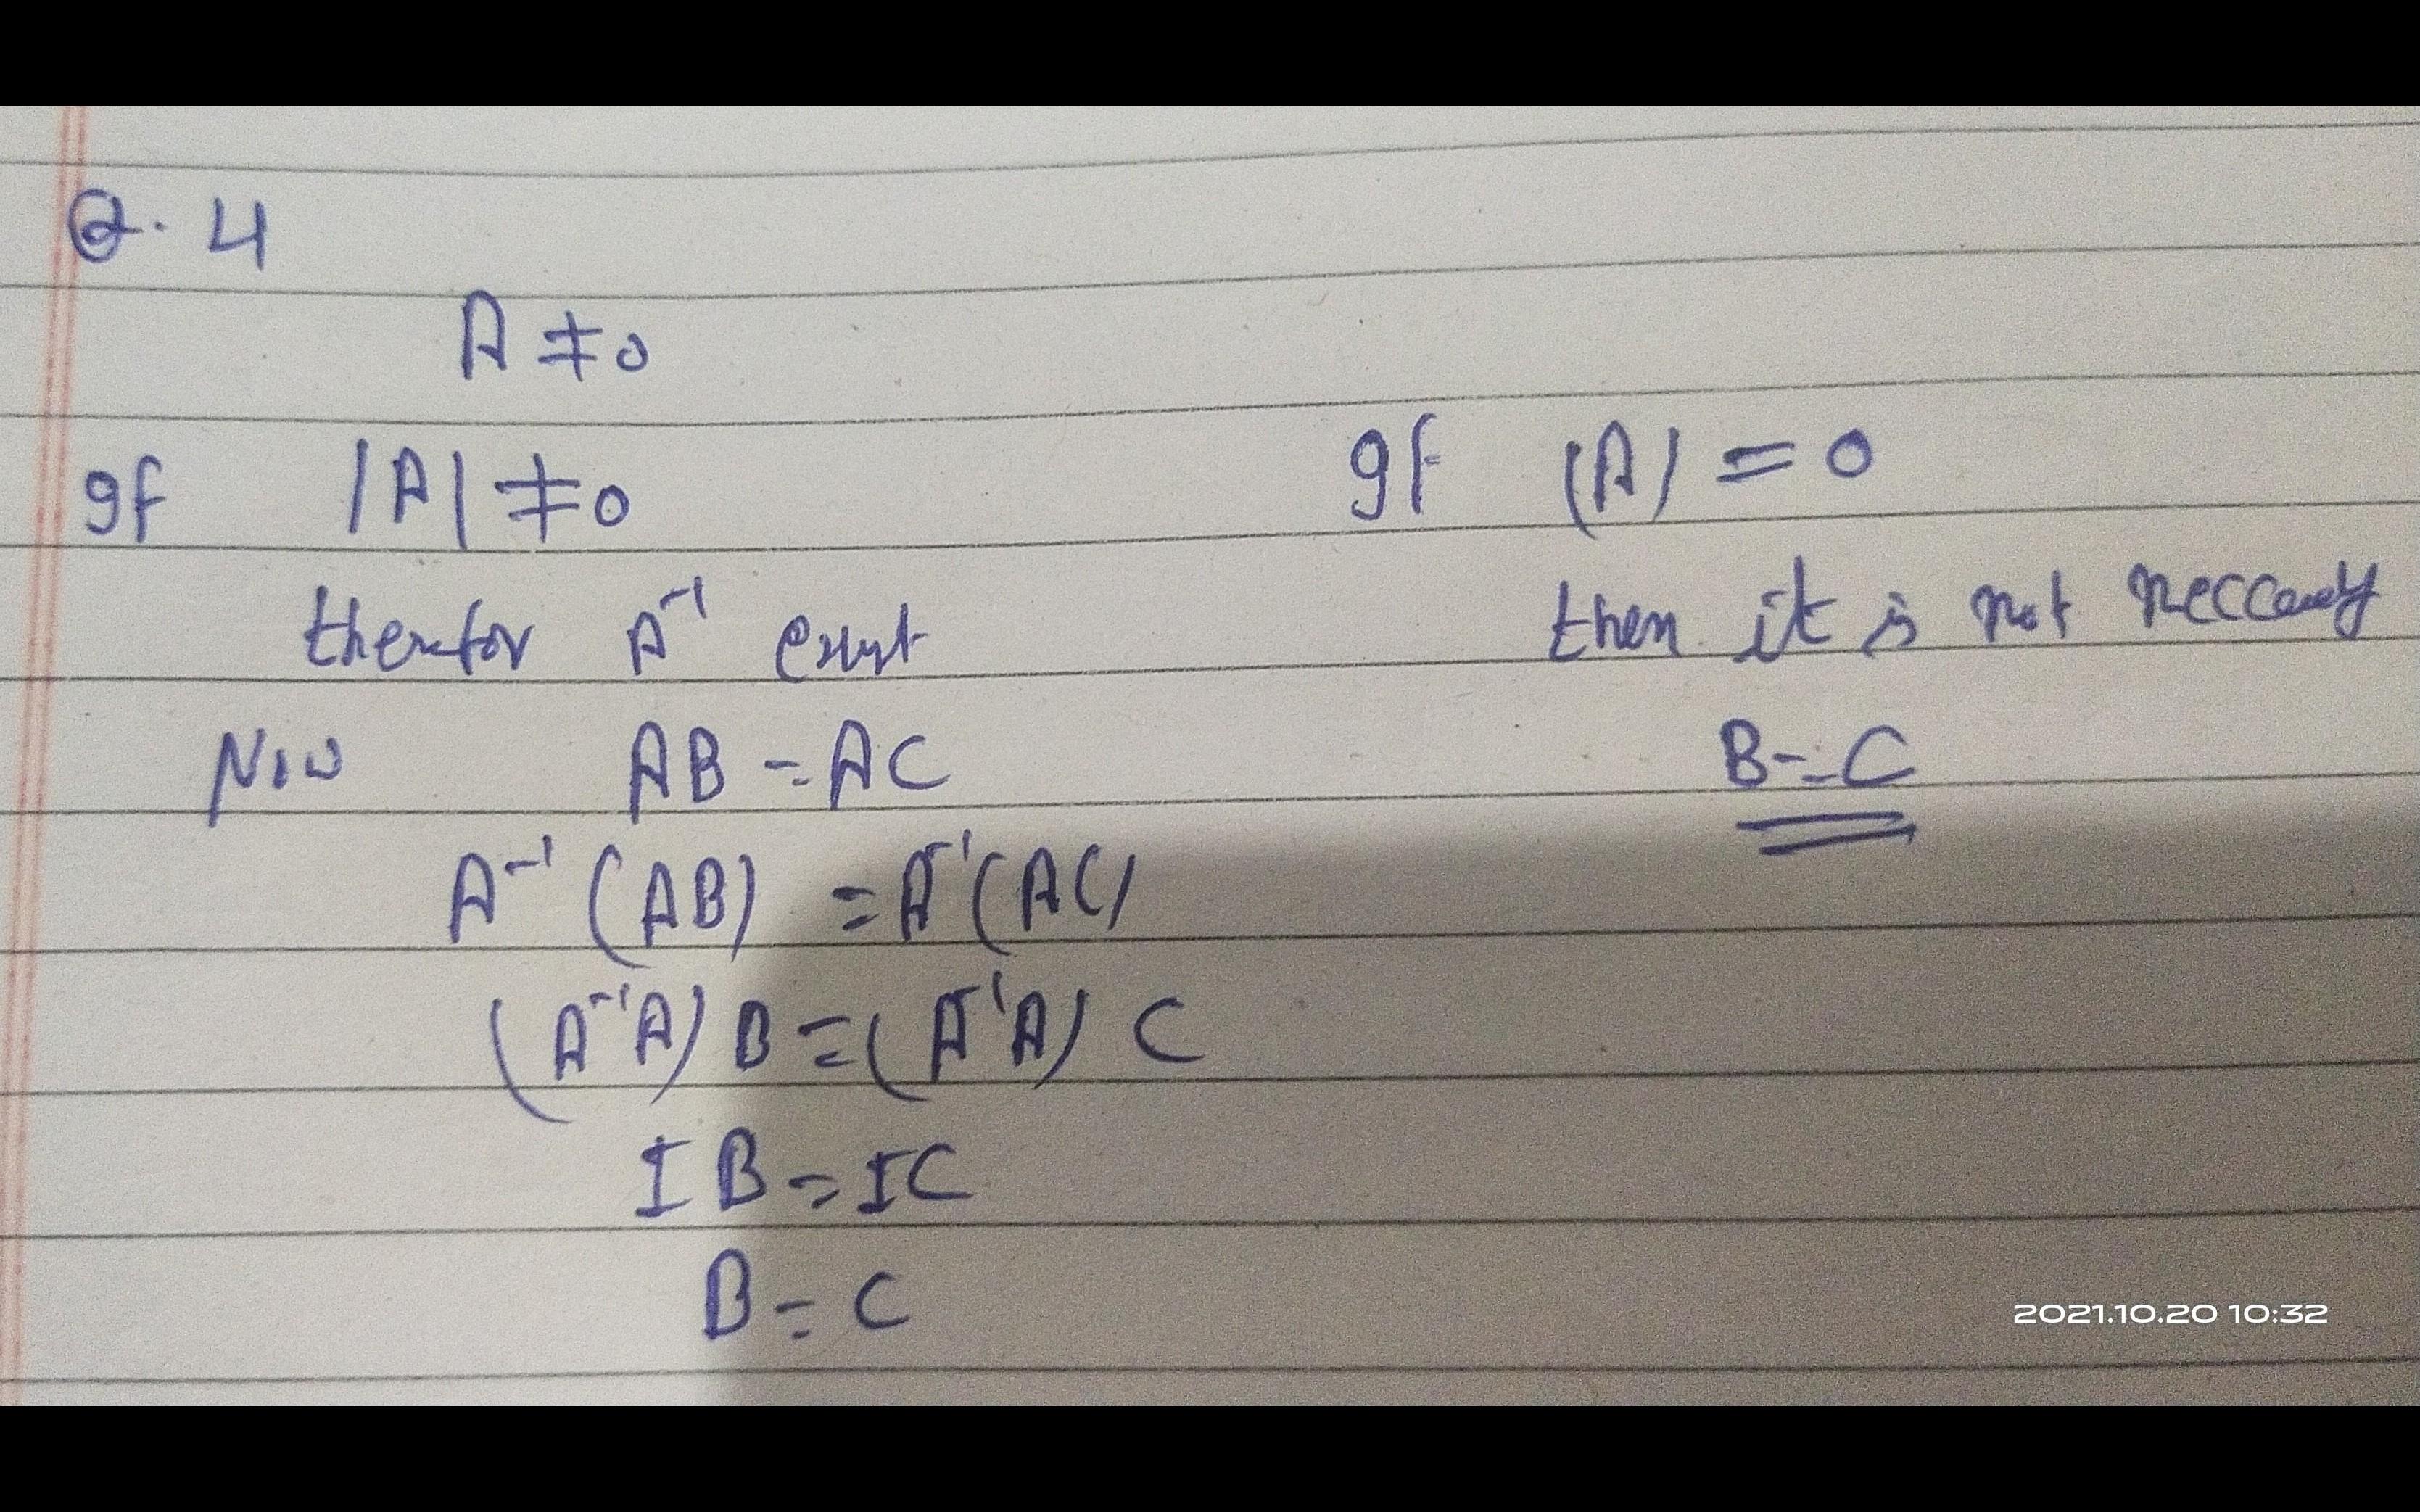 Q. 4
A ≠ 0
If |A| ≠ 0
therefor A⁻¹ exist
Now AB = AC
A⁻¹ (AB) = A⁻¹(AC)
(A⁻¹A) B = (A⁻¹A) C
I B = IC
B = C
If |A| = 0
then it is not
B = C
2021.10.20 10:32